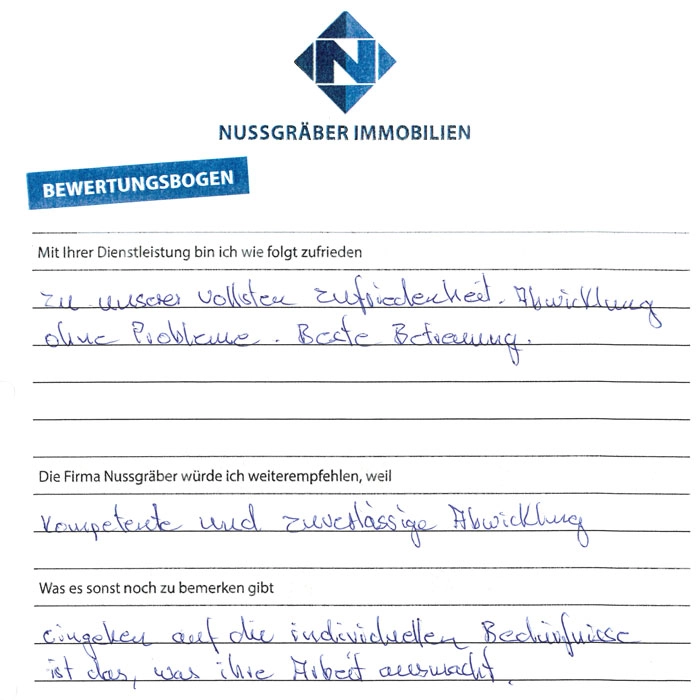 N
NUSSGRÄBER IMMOBILIEN
BEWERTUNGSBOGEN
Mit Ihrer Dienstleistung bin ich wie folgt zufrieden
zu unserer vollsten Zufriedenheit. Abwicklung
ohne Probleme. Beste Betreuung.
Die Firma Nussgräber würde ich weiterempfehlen, weil
Kompetente und zuverlässige Abwicklung
Was es sonst noch zu bemerken gibt
eingehen auf die individuellen Bedürfnisse
ist das, was ihre Arbeit ausmacht.